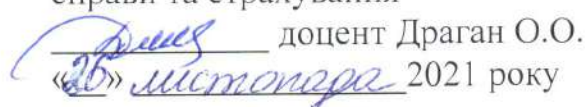 справи та страхування
доцент Драган О.О.
«26» листопада 2021 року